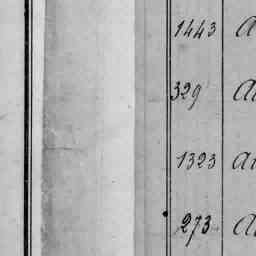 1443
329
1323
273